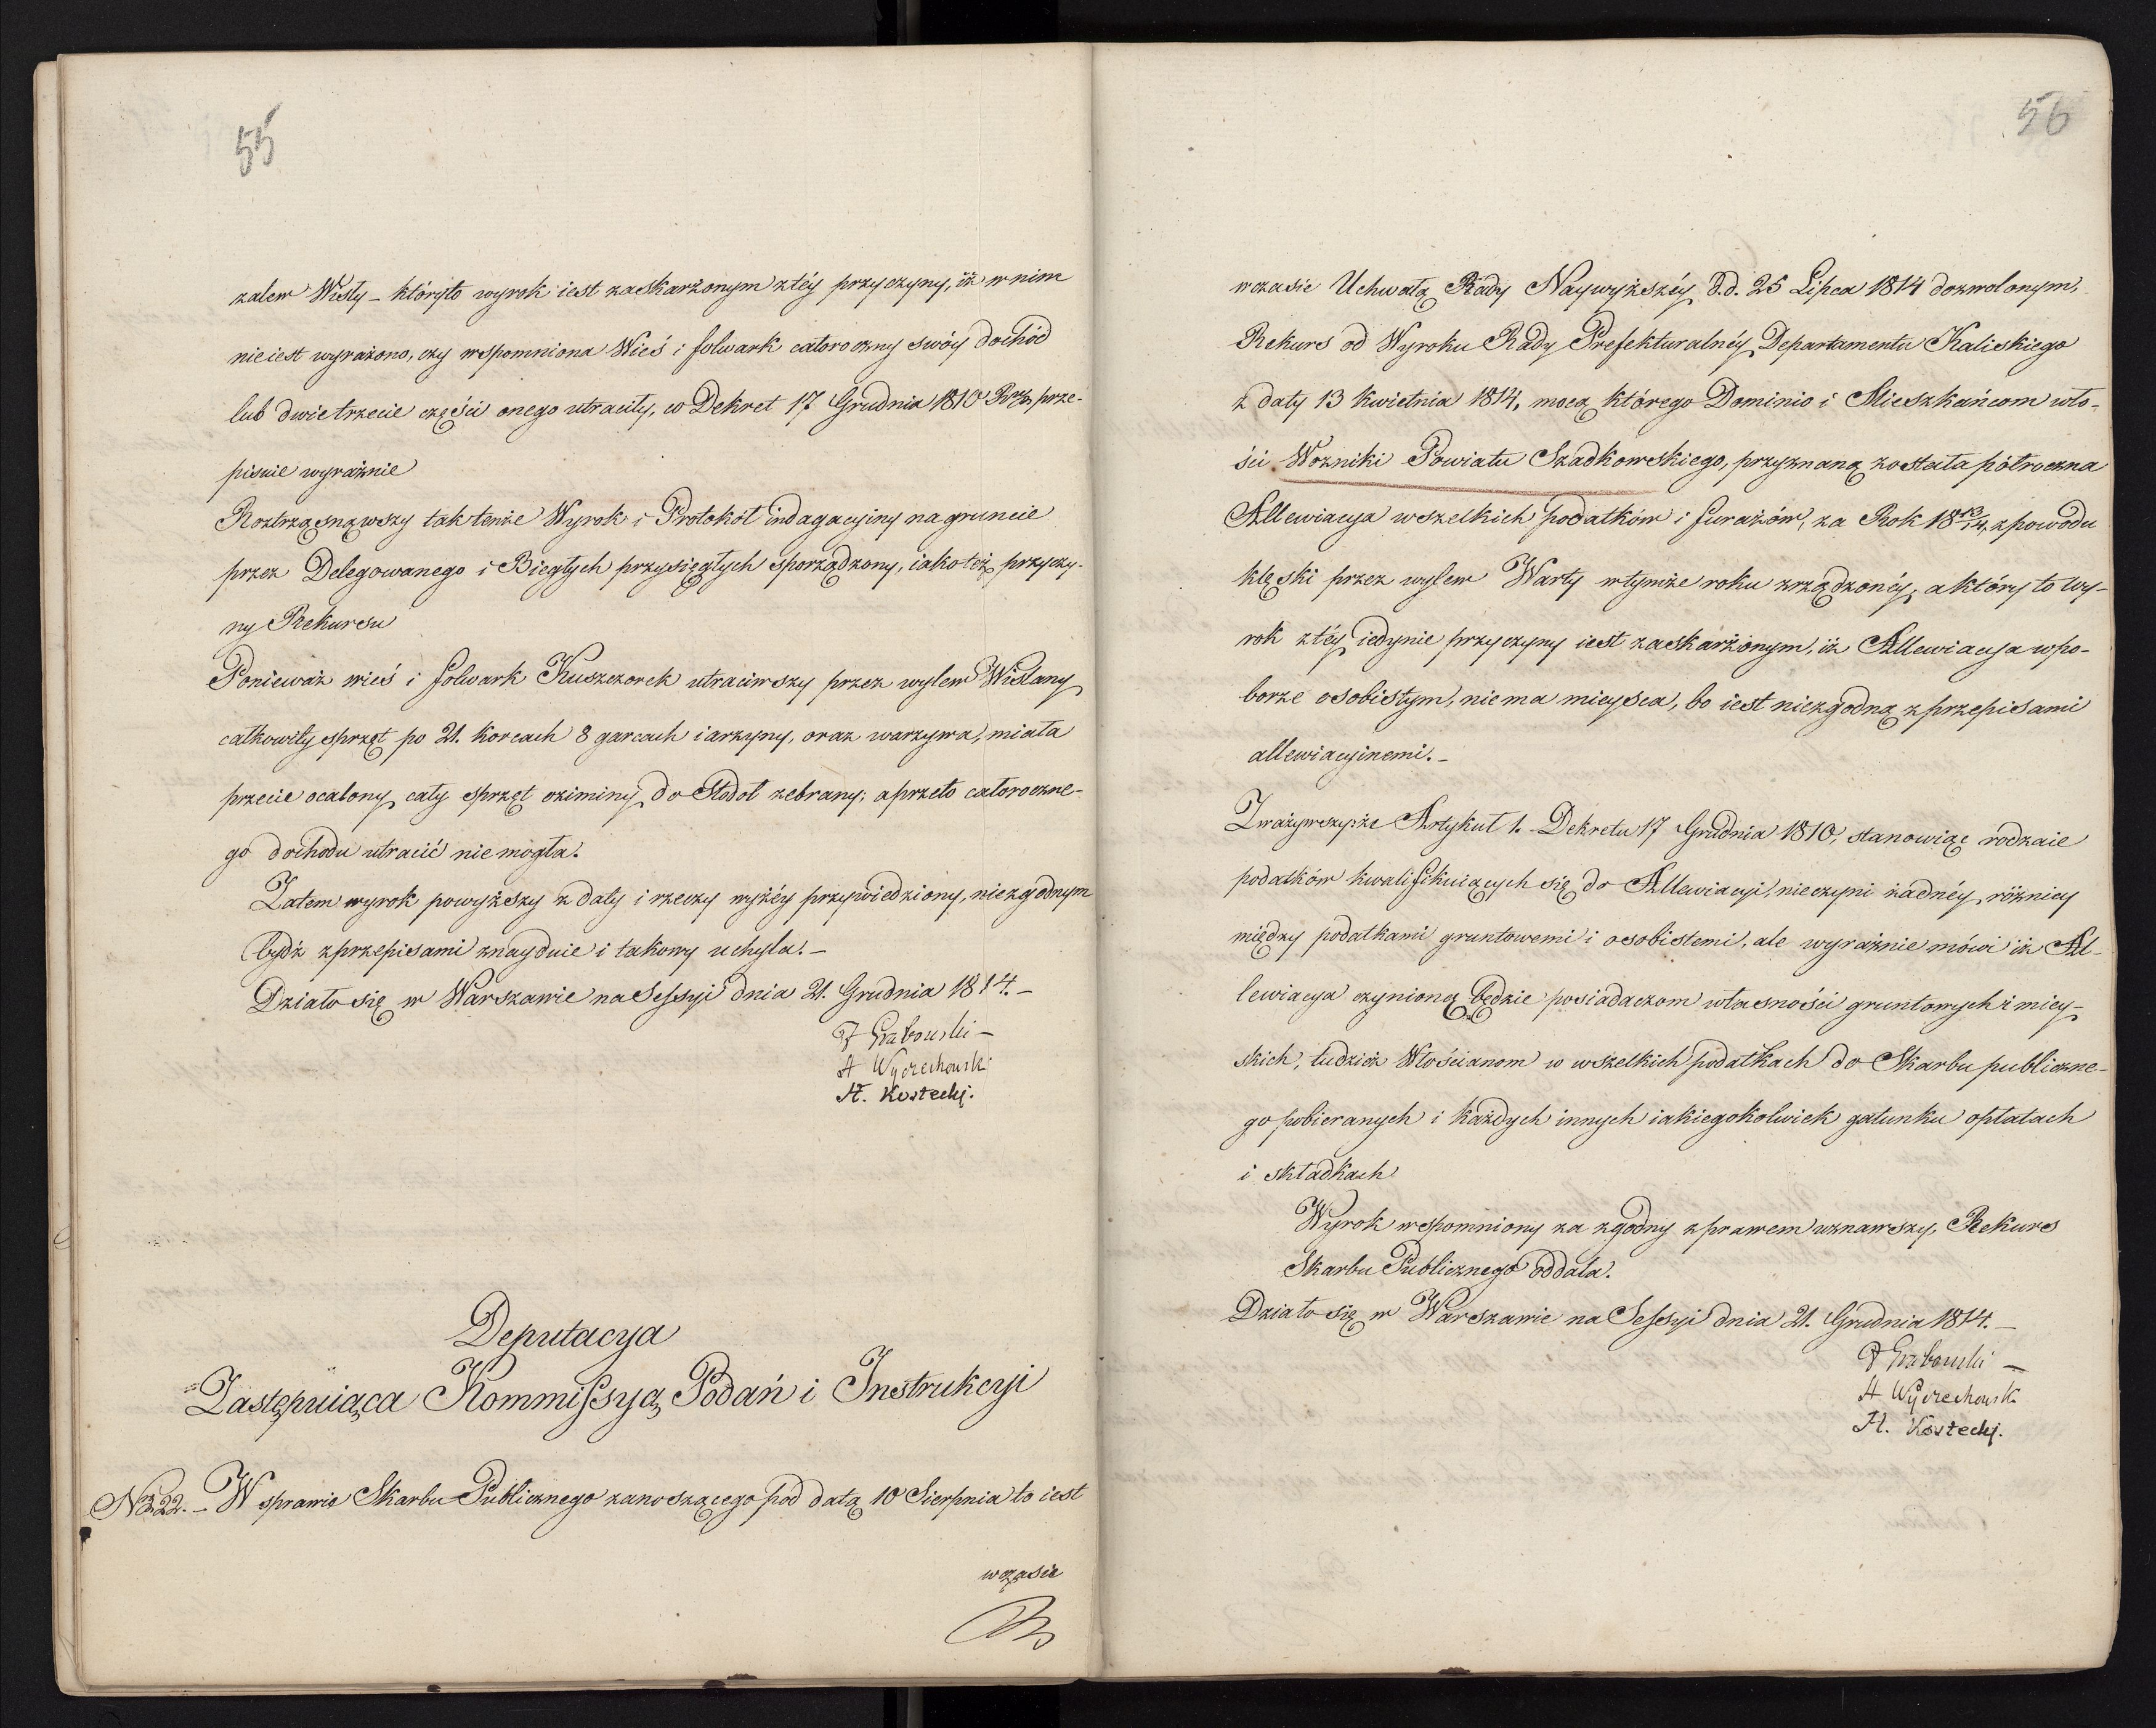 55
zalew Wisły – któryto wyrok iest zaskarżonym z téy przyczyny, iż w nim
nieiest wyrażono, czy wspomniona Wieś i folwark całoroczny swóy dochód
lub dwie trzecie części onego utraciły, co Dekret 17 Grudnia 1810 Rku, prze-
pisuie wyraźnie
Roztrząsnąwszy tak tenże Wyrok i Protokół indagacyiny na gruncie
przez Delegowanego i Biegłych przysięgłych sporządzony, iakoteż przyczy-
ny Rekursu
Ponieważ wieś i folwark Kuszczorek utraciwszy przez wylew Wiślany
całkowity sprzęt po 21. korcach 8 garcach iarzyny, oraz warzywa, miała
przecie ocalony cały sprzęt oziminy do Stodoł zebrany; a przeto całoroczne-
go dochodu utracić nie mogła.
Zatem wyrok powyższy z daty i rzeczy wyżéy przywiedziony, niezgodnym
bydź z przepisami znayduie i takowy uchyla. –
Działo się w Warszawie na Sessyi dnia 21. Grudnia 1814. –
F Grabowski –
A Wyczechowski
H. Kostecki.
Deputacya
Zastępuiąca Kommissyą Podań i Instrukcyi
No 322. – W sprawie Skarbu Publicznego zanoszącego pod datą 10 Sierpnia to iest
wczasie
56
wczasie Uchwałą Rady Naywyższéy d.d. 25 Lipca 1814 dozwolonym,
Rekurs od Wyroku Rady Prefekturalnéy Departamentu Kaliskiego
z daty 13 kwietnia 1814, mocą którego Dominio i Mieszkańcom wło-
ści Wozniki Powiatu Szadkowskiego, przyznaną została półroczna
Allewiacya wszelkich podatków i furażów, za Rok 18 13/14, z powodu
klęski przez wylew Warty w tymże roku zrządzonéy, a który to wy-
rok z téy iedynie przyczyny iest zaskarżonym, iż Allewiacya w po-
borze osobistym, nie ma mieysca, bo iest niezgodną z przepisami
allewiacyinemi. –
Zważywszy że Artykuł 1. Dekretu 17 Grudnia 1810, stanowiąc rodzaie
podatków kwalifikuiących się do Allewiacyi, nieczyni żadnéy różnicy
między podatkami gruntowemi i osobistemi, ale wyraźnie mówi iż Al-
lewiacya czynioną będzie posiadaczom własności gruntowych i miey-
skich, tudzież Włościanom w wszelkich podatkach do Skarbu publiczne-
go pobieranych i każdych innych iakiegokolwiek gatunku opłatach
i składkach
Wyrok wspomniony za zgodny z prawem uznawszy, Rekurs
Skarbu Publicznego oddala.
Działo się w Warszawie na Sessyi dnia 21. Grudnia 1814. –
F Grabowski –
A Wyczechowski
H. Kostecki.